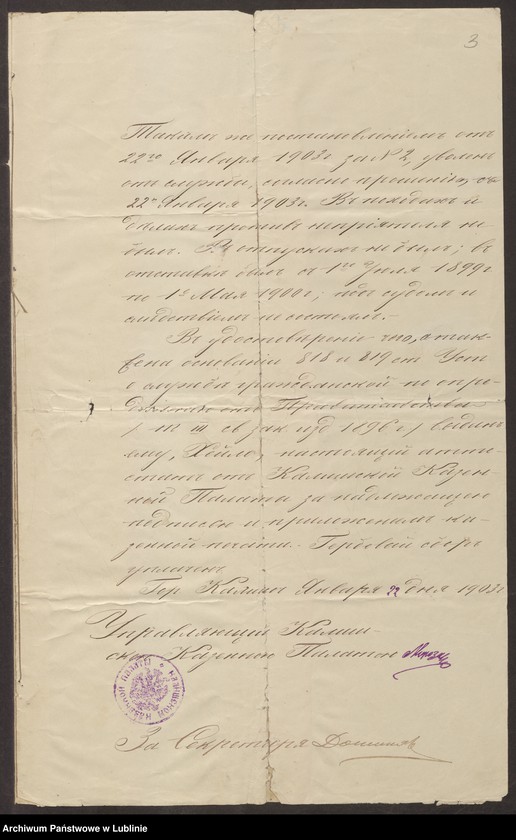 3
Такимъ же постановленіемъ отъ
22го Января 1903г за № 2, уволенъ
отъ службы, согласно прошенію, съ
22го Января 1903г. Въ походахъ и
дѣлахъ противъ непріятеля не
былъ. Въ отпускахъ не былъ; въ
отставкѣ былъ съ 1го Іюля 1899г
по 1е Мая 1900г; подъ судомъ и
слѣдствіемъ не состоялъ.-
Въ удостовѣреніе чего,
на основаніи 818 и 819 ст Уст
о службѣ гражданской по опре-
дѣленію отъ Правительства
/ т. III св зак изд 1896 г/
ему, настоящій атте-
статъ отъ Калишской Казен-
ной Палаты за надлежащею
подписью и приложеніемъ ка-
зенной печати. Гербовый сборъ
уплаченъ
Гор Калишъ Января 22 дня 1903г
Управляющій Калиш-
скою Казенною Палатою
За Секретаря
Archiwum Państwowe w Lublinie